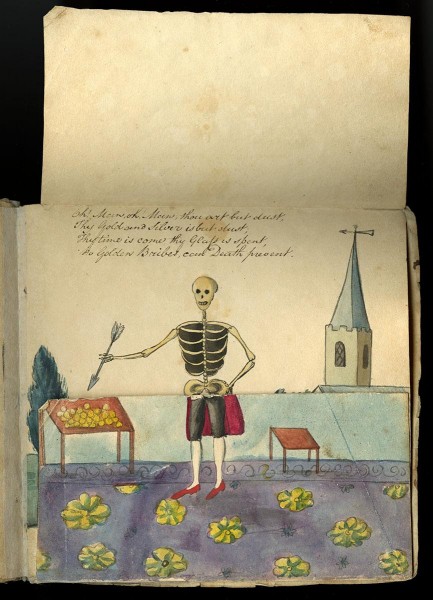 Oh! Man, oh, Man, thou art but dust,
Thy Gold and Silver is but dust,
Thy time is come thy Glass is spent,
No Golden Bribes, can Death prevent.